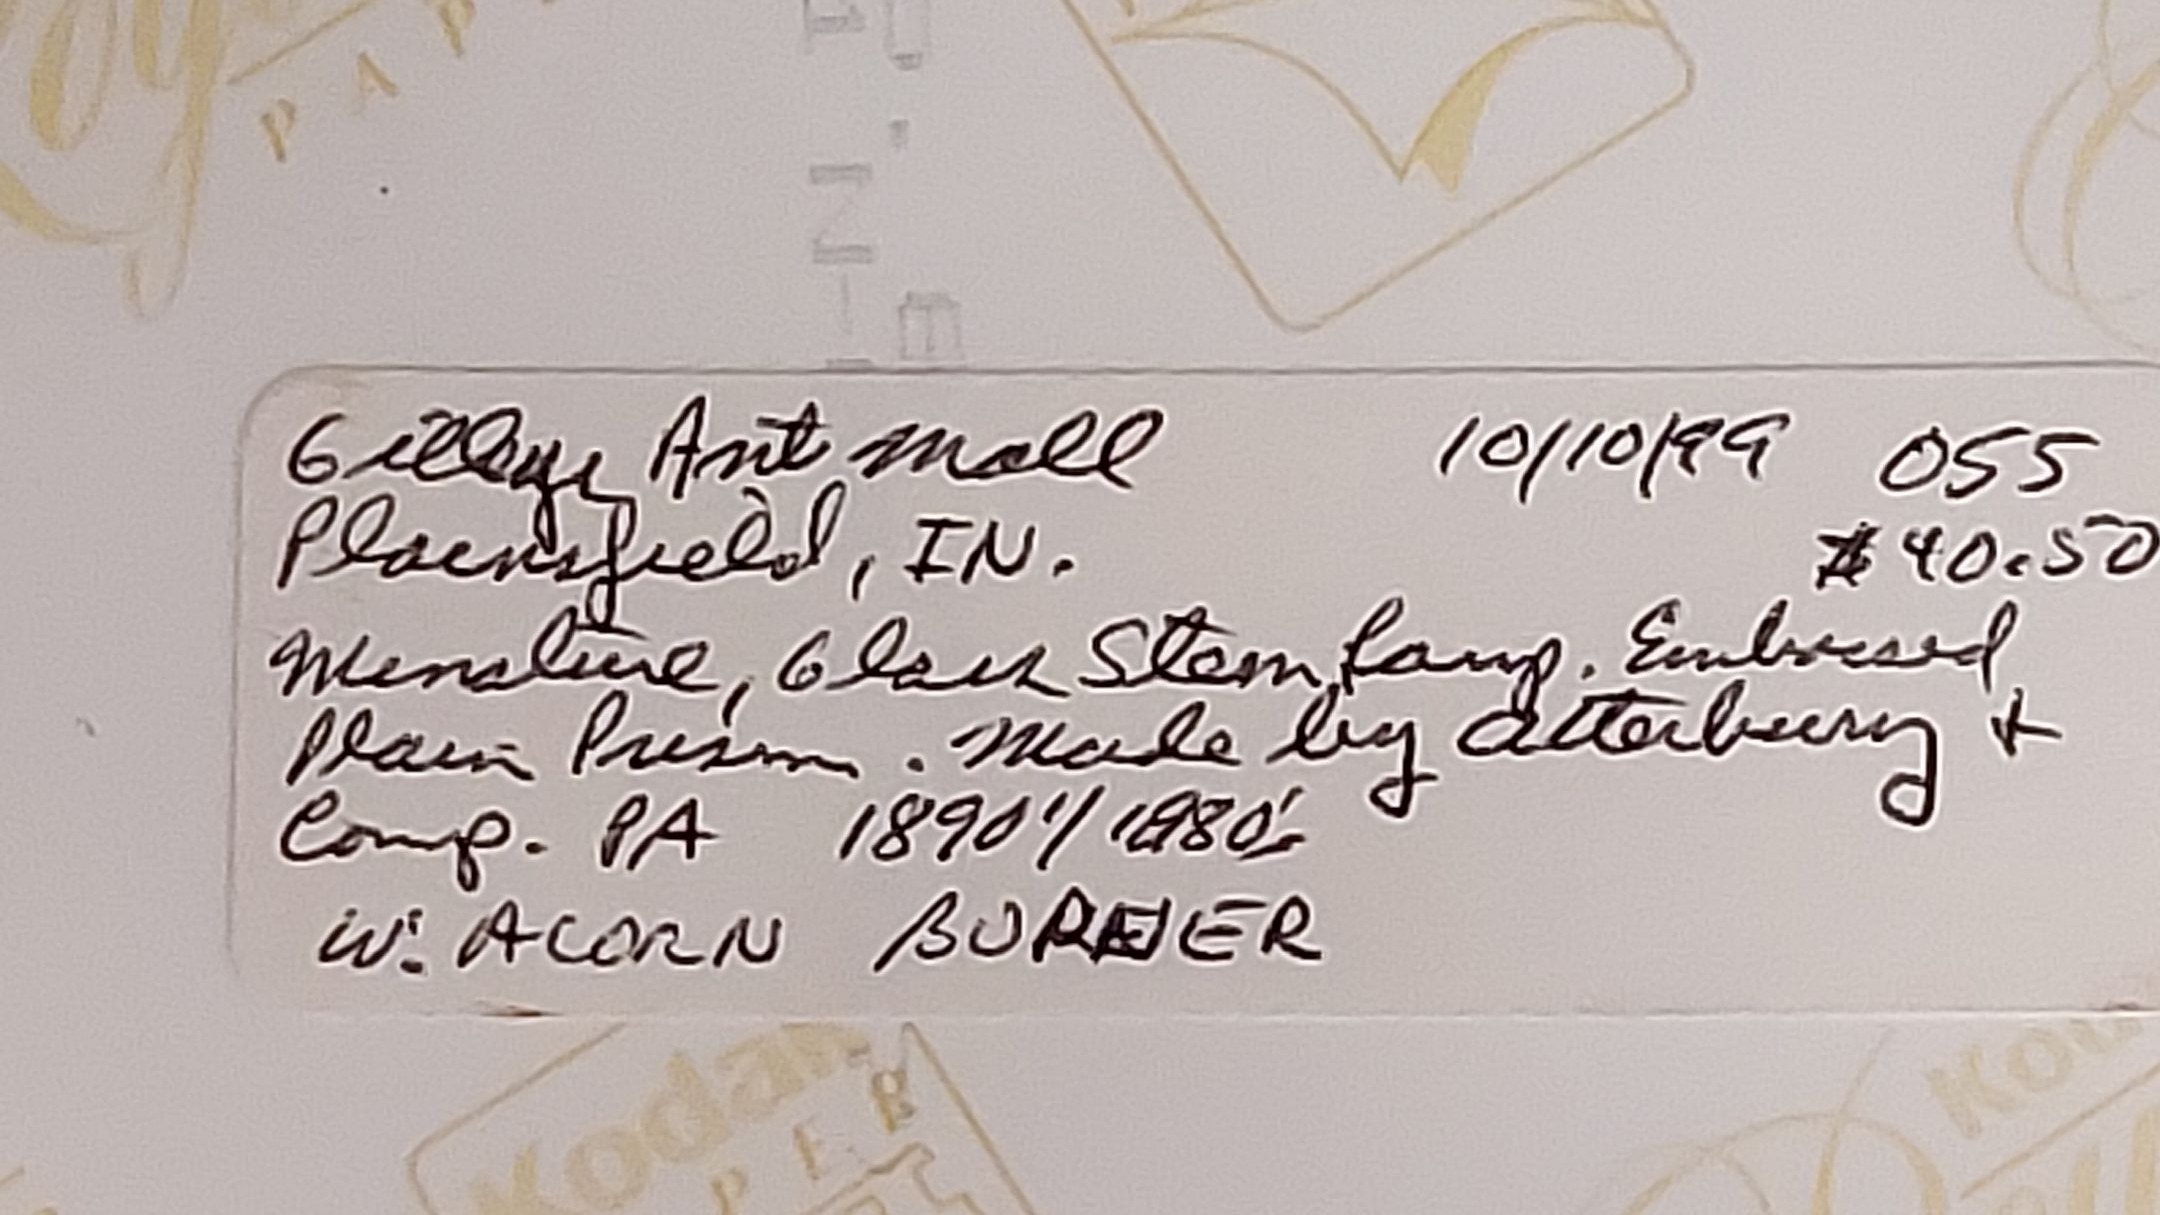 Gilleys Ant Mall 10/10/99 055
Plainsfield, IN. $40.50
Minature, Glass Stem Lamp. Embossed
Plain Prism. Made by Atterbury &
Comp. PA 1890's/1980's
W. ACORN BURNER
Kodak
PER